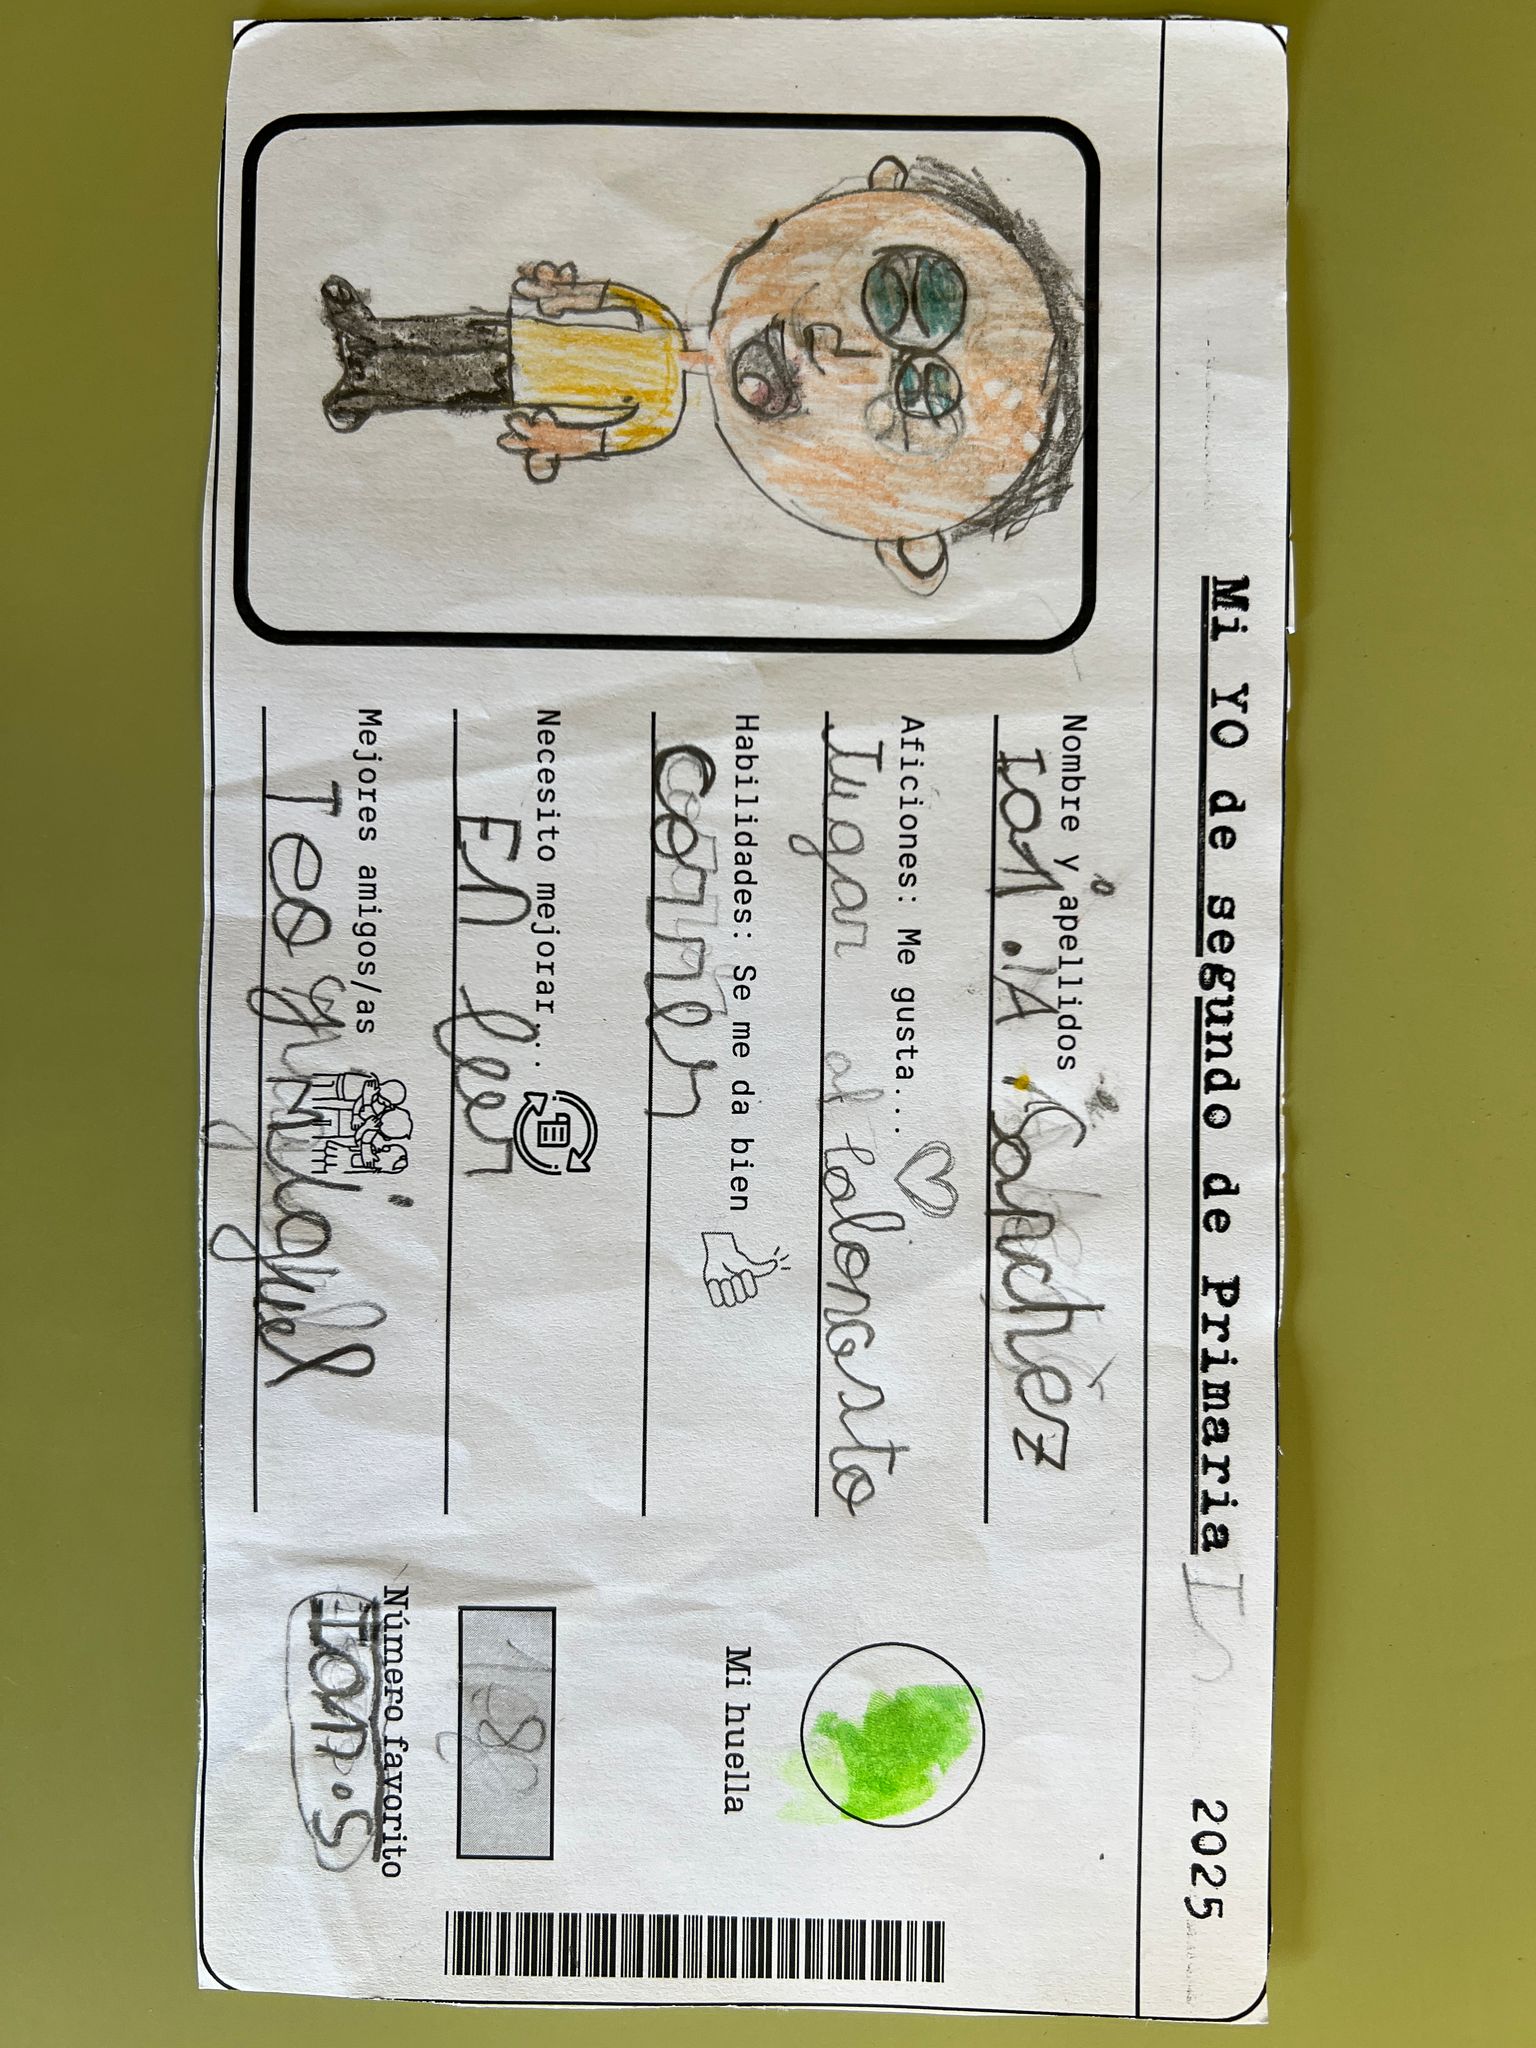 Mi YO de segundo de Primaria
2025
Nombre y apellidos
Ian .A Sanchèz
Aficiones: Me gusta...
Jugar al balonasto
Habilidades: Se me da bien
correr
Necesito mejorar...
En leer
Mejores amigos/as
Teo y miguel
Mi huella
Número favorito
Ian.S